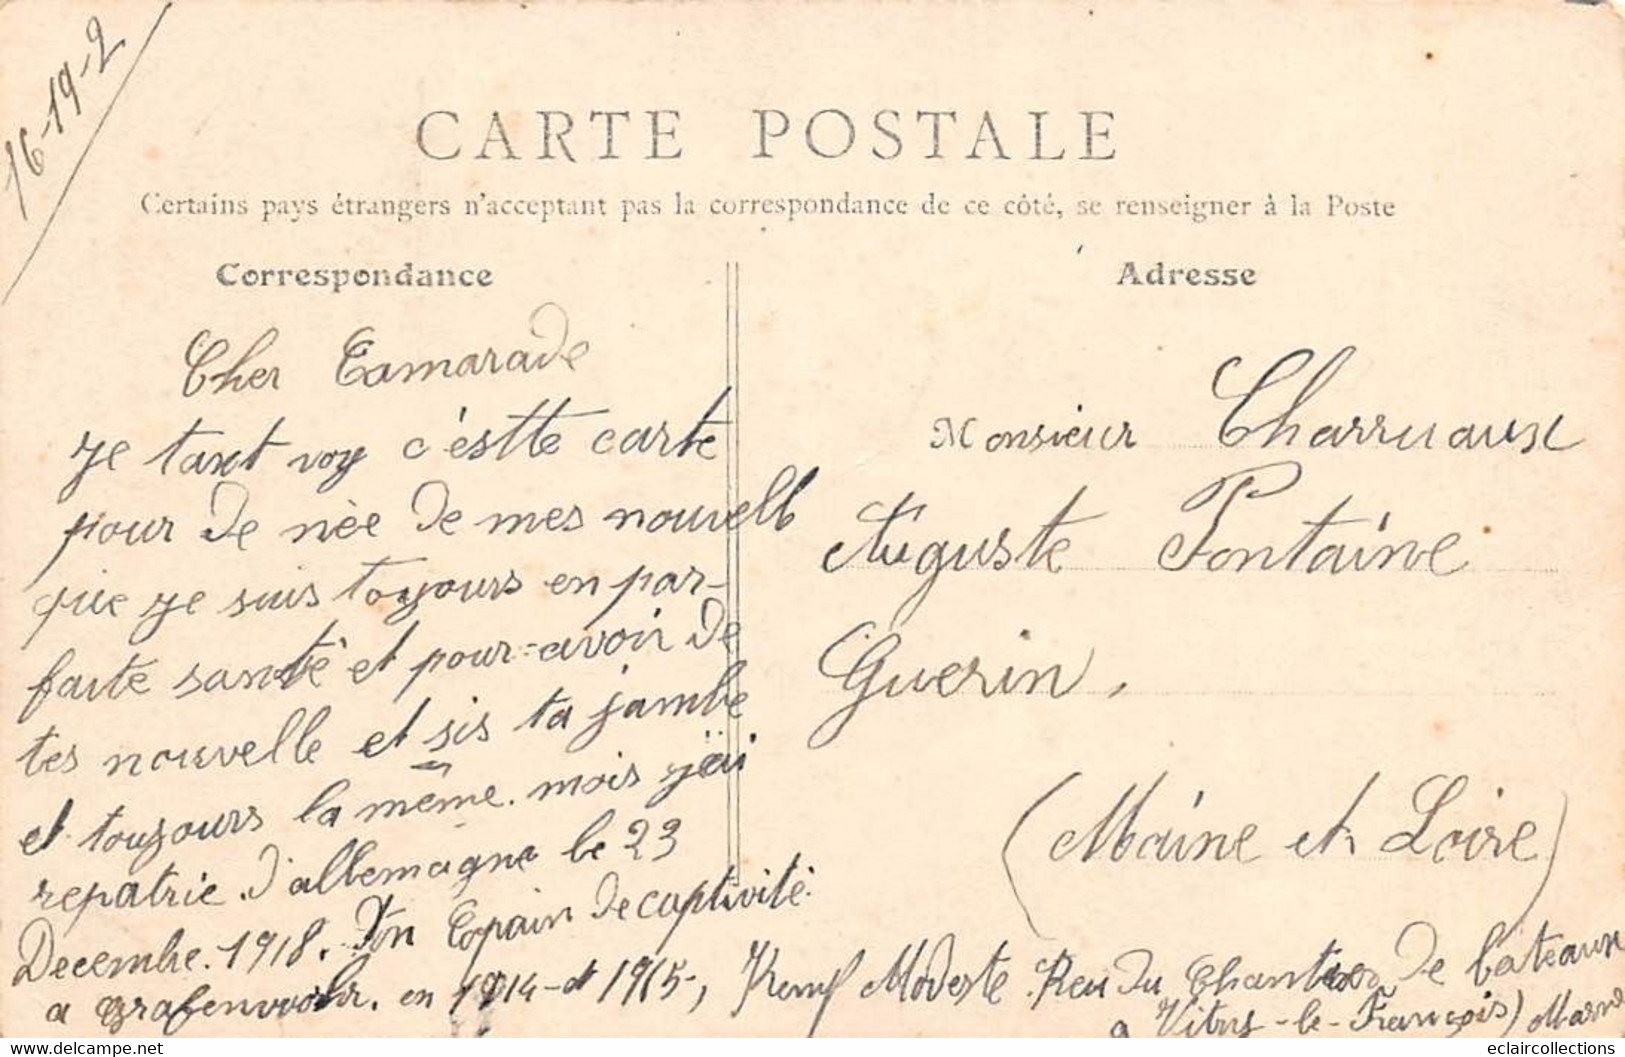 16-19-2
CARTE POSTALE
Certains pays étrangers n'acceptant pas la correspondance de ce côté, se renseigner à la Poste
Correspondance
Cher Camarade
Je tant voy c'éstte carte
pour de née de mes nouvell
que je suis toyours en par-
faite santé et pour-avoir de
tes nouvelle et sis ta jambe
et toujours la même. mois j'ai
repatrie. d'allemagne le 23
Decembre. 1918. Ton Copain de captivité.
a Grafenwohr. en 1914-et 1915-,
Modeste Reu du Chantier De bateaux
a Vitry-le-François) Marne
Adresse
Monsieur Charruaux
Auguste Fontaine
Guerin,
(Maine et Loire)
© delcampe.net
eclaircollections